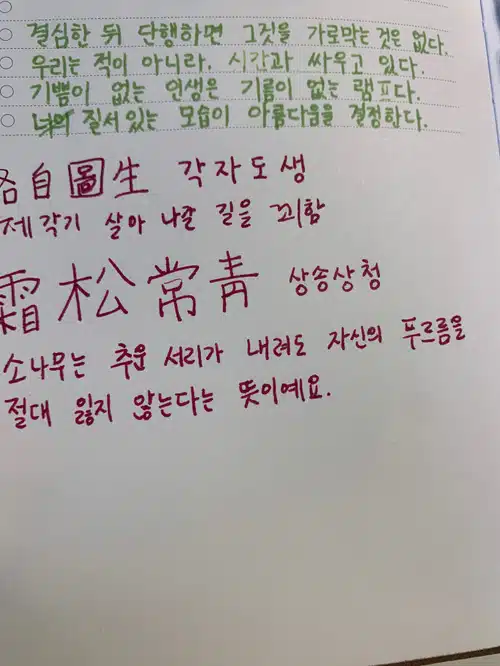 결심한 뒤 단행하면 그것을 가로막는 것은 없다.
우리는 적이 아니라, 시간과 싸우고 있다.
기쁨이 없는 인생은 기름이 없는 램프다.
질서 있는 모습이 아름다움을 결정한다.
各自圖生 각자도생
제각기 살아 나갈 길을 꾀함
霜松常靑 상송상청
소나무는 추운 서리가 내려도 자신의 푸르름을
절대 잃지 않는다는 뜻이예요.